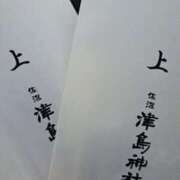 上
佐沼
津島
上
佐沼
津島神社